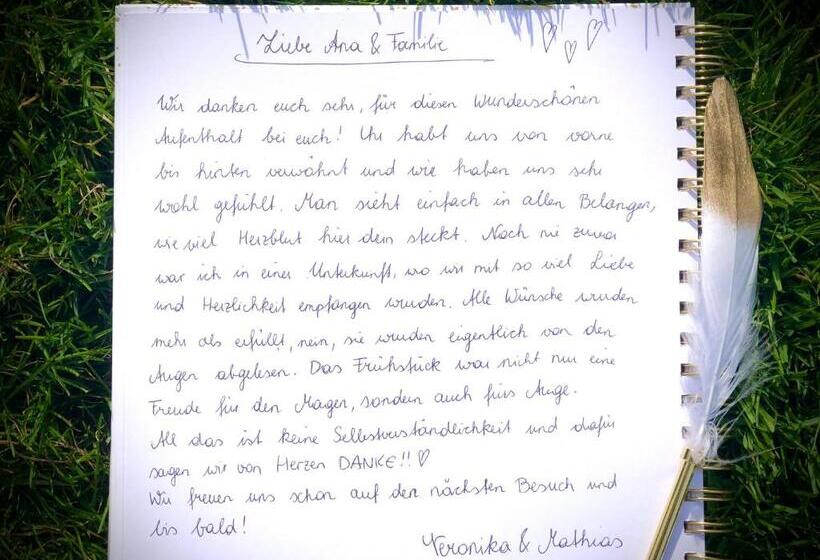 Liebe Ana & Familie
Wir danken euch sehr, für diesen Wunderschönen
Aufenthalt bei euch! Ihr habt uns von vorne
bis hinten verwöhnt und wir haben uns sehr
wohl gefühlt. Man sieht einfach in allen Belangen,
wie viel Herzblut hier drin steckt. Noch nie zuvor
war ich in einer Unterkunft, wo wir mit so viel Liebe
und Herzlichkeit empfangen wurden. Alle Wünsche wurden
mehr als erfüllt, nein, sie wurden eigentlich von den
Augen abgelesen. Das Frühstück war nicht nur eine
Freude für den Magen, sondern auch fürs Auge.
All das ist keine Selbstverständlichkeit und dafür
sagen wir von Herzen DANKE!! ♡
Wir freuen uns schon auf den nächsten Besuch und
bis bald!
Veronika & Mathias